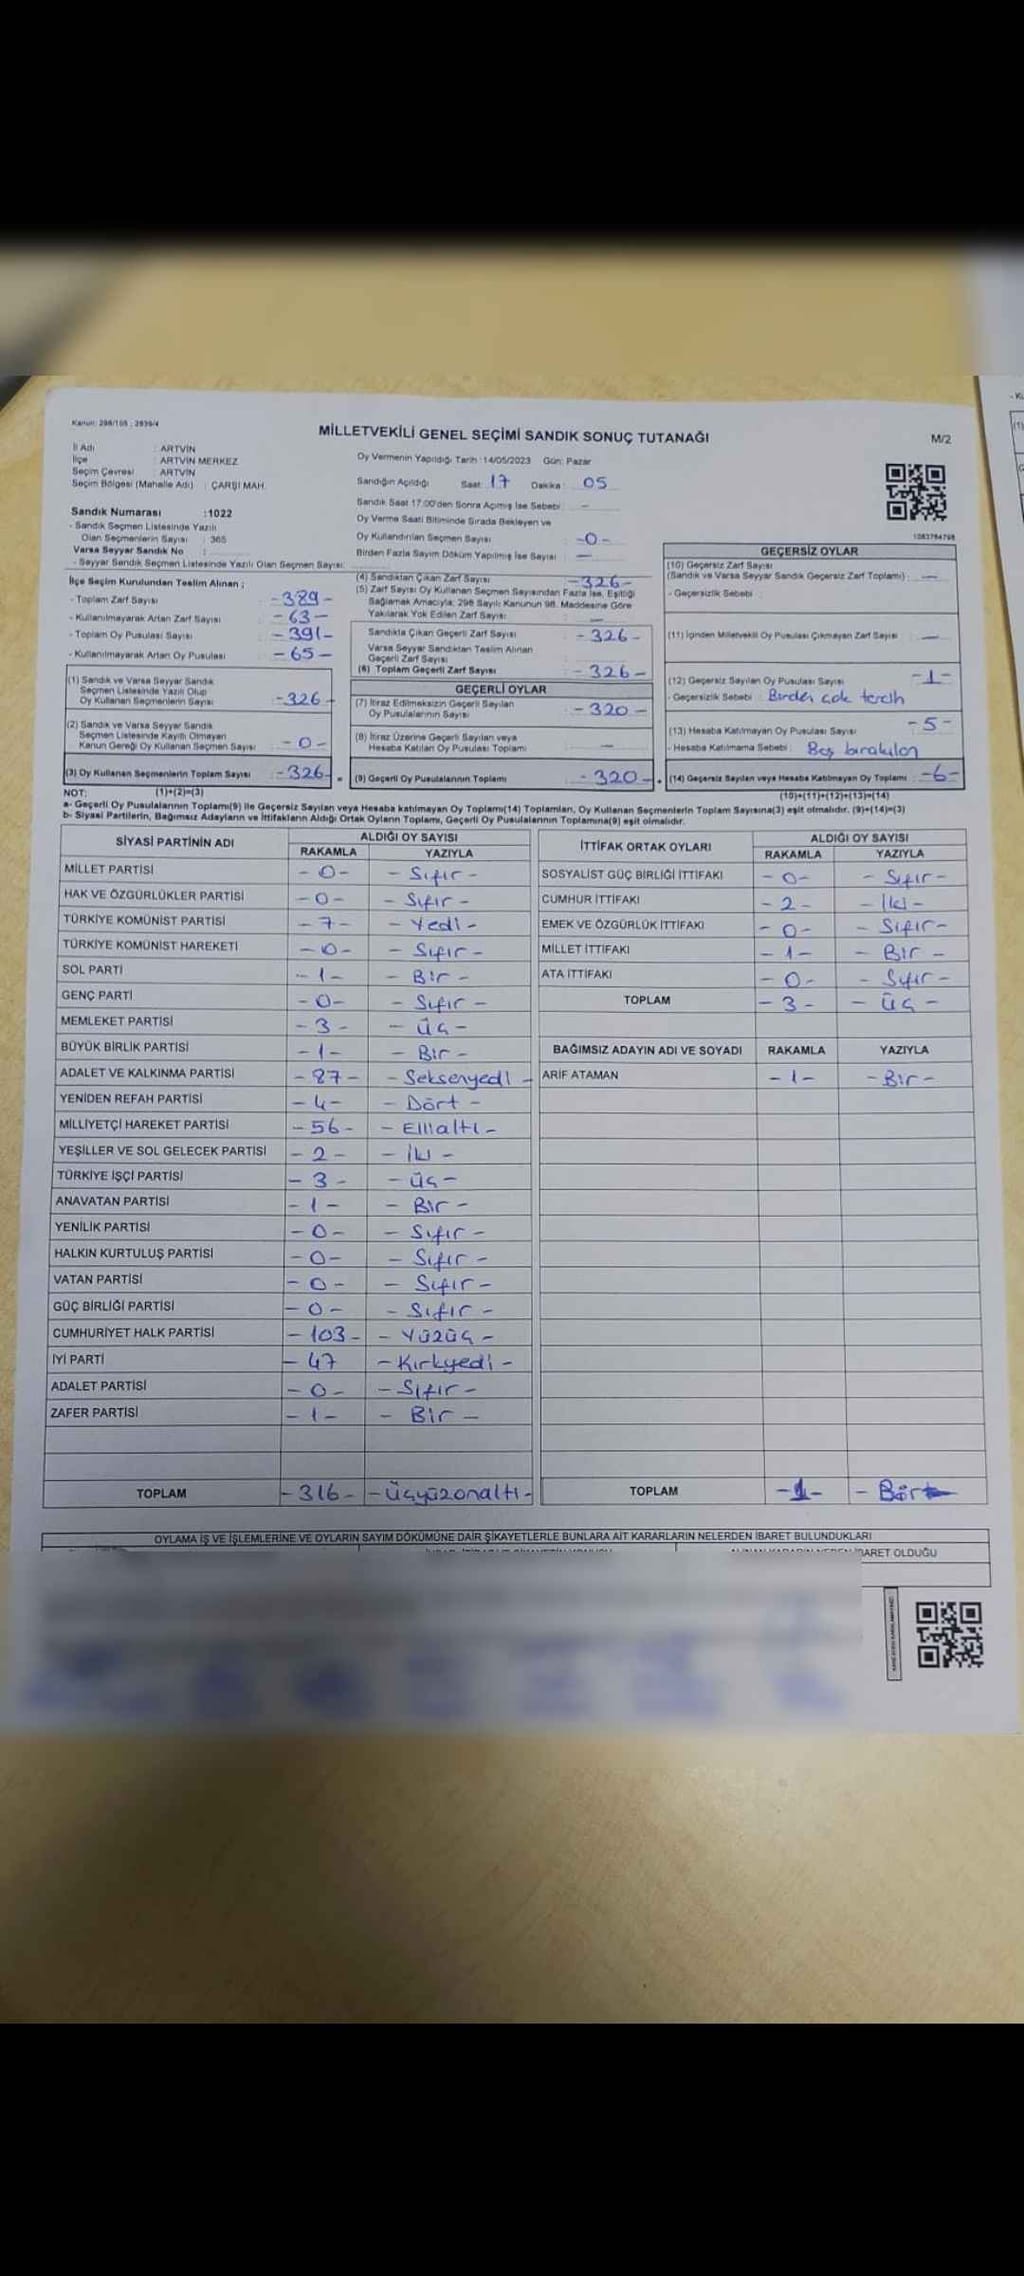 Kanun: 298/105 ; 2839/4
MİLLETVEKİLİ GENEL SEÇİMİ SANDIK SONUÇ TUTANAĞI
M/2
İl Adı : ARTVİN
İlçe : ARTVİN MERKEZ
Seçim Çevresi : ARTVİN
Seçim Bölgesi (Mahalle Adı) : ÇARŞI MAH.
Oy Vermenin Yapıldığı Tarih :14/05/2023 Gün: Pazar
Sandığın Açıldığı Saat: 17 Dakika: 05
Sandık Saat 17:00'den Sonra Açılmış İse Sebebi : -
Oy Verme Saati Bitiminde Sırada Bekleyen ve
Oy Kullandırılan Seçmen Sayısı : -0-
Birden Fazla Sayım Döküm Yapılmış İse Sayısı : -
1083784798
Sandık Numarası :1022
- Sandık Seçmen Listesinde Yazılı
Olan Seçmenlerin Sayısı : 365
Varsa Seyyar Sandık No :
- Seyyar Sandık Seçmen Listesinde Yazılı Olan Seçmen Sayısı:
İlçe Seçim Kurulundan Teslim Alınan ;
- Toplam Zarf Sayısı : -389-
- Kullanılmayarak Artan Zarf Sayısı : -63-
- Toplam Oy Pusulası Sayısı : -391-
- Kullanılmayarak Artan Oy Pusulası : -65-
(1) Sandık ve Varsa Seyyar Sandık
Seçmen Listesinde Yazılı Olup
Oy Kullanan Seçmenlerin Sayısı : -326-
(2) Sandık ve Varsa Seyyar Sandık
Seçmen Listesinde Kayıtlı Olmayan
Kanun Gereği Oy Kullanan Seçmen Sayısı : -0-
(3) Oy Kullanan Seçmenlerin Toplam Sayısı : -326-
(4) Sandıktan Çıkan Zarf Sayısı : -326-
(5) Zarf Sayısı Oy Kullanan Seçmen Sayısından Fazla İse, Eşitliği
Sağlamak Amacıyla; 298 Sayılı Kanunun 98. Maddesine Göre
Yakılarak Yok Edilen Zarf Sayısı: -
Sandıkta Çıkan Geçerli Zarf Sayısı : -326-
Varsa Seyyar Sandıktan Teslim Alınan
Geçerli Zarf Sayısı :
(6) Toplam Geçerli Zarf Sayısı : -326-
GEÇERLİ OYLAR
(7) İtiraz Edilmeksizin Geçerli Sayılan
Oy Pusulalarının Sayısı : -320-
(8) İtiraz Üzerine Geçerli Sayılan veya
Hesaba Katılan Oy Pusulası Toplamı : -
(9) Geçerli Oy Pusulalarının Toplamı : -320-
GEÇERSİZ OYLAR
(10) Geçersiz Zarf Sayısı
(Sandık ve Varsa Seyyar Sandık Geçersiz Zarf Toplamı) : -
- Geçersizlik Sebebi :
(11) İçinden Milletvekili Oy Pusulası Çıkmayan Zarf Sayısı : -
(12) Geçersiz Sayılan Oy Pusulası Sayısı : -1-
- Geçersizlik Sebebi : Birden çok tercih
(13) Hesaba Katılmayan Oy Pusulası Sayısı : -5-
- Hesaba Katılmama Sebebi : Boş bırakılan
(14) Geçersiz Sayılan veya Hesaba Katılmayan Oy Toplamı : -6-
NOT: (1)+(2)=(3)
(10)+(11)+(12)+(13)=(14)
a- Geçerli Oy Pusulalarının Toplamı(9) ile Geçersiz Sayılan veya Hesaba katılmayan Oy Toplamı(14) Toplamları, Oy Kullanan Seçmenlerin Toplam Sayısına(3) eşit olmalıdır. (9)+(14)=(3)
b- Siyasi Partilerin, Bağımsız Adayların ve İttifakların Aldığı Ortak Oyların Toplamı, Geçerli Oy Pusulalarının Toplamına(9) eşit olmalıdır.
SİYASİ PARTİNİN ADI ALDIĞI OY SAYISI
RAKAMLA YAZIYLA
MİLLET PARTİSİ -0- -Sıfır-
HAK VE ÖZGÜRLÜKLER PARTİSİ -0- -Sıfır-
TÜRKİYE KOMÜNİST PARTİSİ -7- -Yedi-
TÜRKİYE KOMÜNİST HAREKETİ -0- -Sıfır-
SOL PARTİ -1- -Bir-
GENÇ PARTİ -0- -Sıfır-
MEMLEKET PARTİSİ -3- -Üç-
BÜYÜK BİRLİK PARTİSİ -1- -Bir-
ADALET VE KALKINMA PARTİSİ -87- -Seksenyedi-
YENİDEN REFAH PARTİSİ -4- -Dört-
MİLLİYETÇİ HAREKET PARTİSİ -56- -Elliialtı-
YEŞİLLER VE SOL GELECEK PARTİSİ -2- -İki-
TÜRKİYE İŞÇİ PARTİSİ -3- -üç-
ANAVATAN PARTİSİ -1- -Bir-
YENİLİK PARTİSİ -0- -Sıfır-
HALKIN KURTULUŞ PARTİSİ -0- -Sıfır-
VATAN PARTİSİ -0- -Sıfır-
GÜÇ BİRLİĞİ PARTİSİ -0- -Sıfır-
CUMHURİYET HALK PARTİSİ -103- -Yüzüç-
İYİ PARTİ -47 -Kırkyedi-
ADALET PARTİSİ -0- -Sıfır-
ZAFER PARTİSİ -1- -Bir-
TOPLAM -316- -Üçyüzonaltı-
İTTİFAK ORTAK OYLARI ALDIĞI OY SAYISI
RAKAMLA YAZIYLA
SOSYALİST GÜÇ BİRLİĞİ İTTİFAKI -0- -Sıfır-
CUMHUR İTTİFAKI -2- -İki-
EMEK VE ÖZGÜRLÜK İTTİFAKI -0- -Sıfır-
MİLLET İTTİFAKI -1- -Bir-
ATA İTTİFAKI -0- -Sıfır-
TOPLAM -3- -Üç-
BAĞIMSIZ ADAYIN ADI VE SOYADI RAKAMLA YAZIYLA
ARİF ATAMAN -1- -Bir-
TOPLAM -1- -Bir
OYLAMA İŞ VE İŞLEMLERİNE VE OYLARIN SAYIM DÖKÜMÜNE DAİR ŞİKAYETLERLE BUNLARA AİT KARARLARIN NELERDEN İBARET BULUNDUKLARI
OLDUĞU